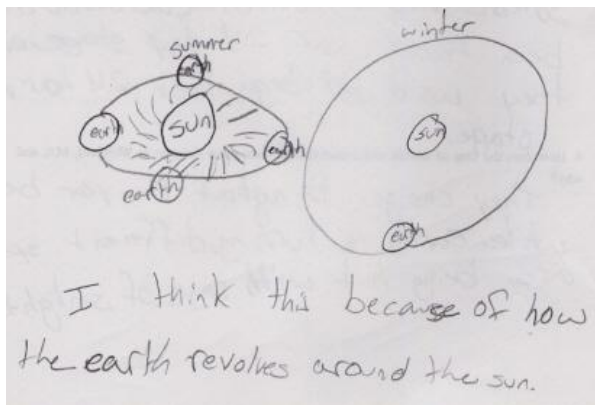 summer
earth
earth
sun
earth
earth
winter
sun
earth
I think this because of how
the earth revolves around the sun.